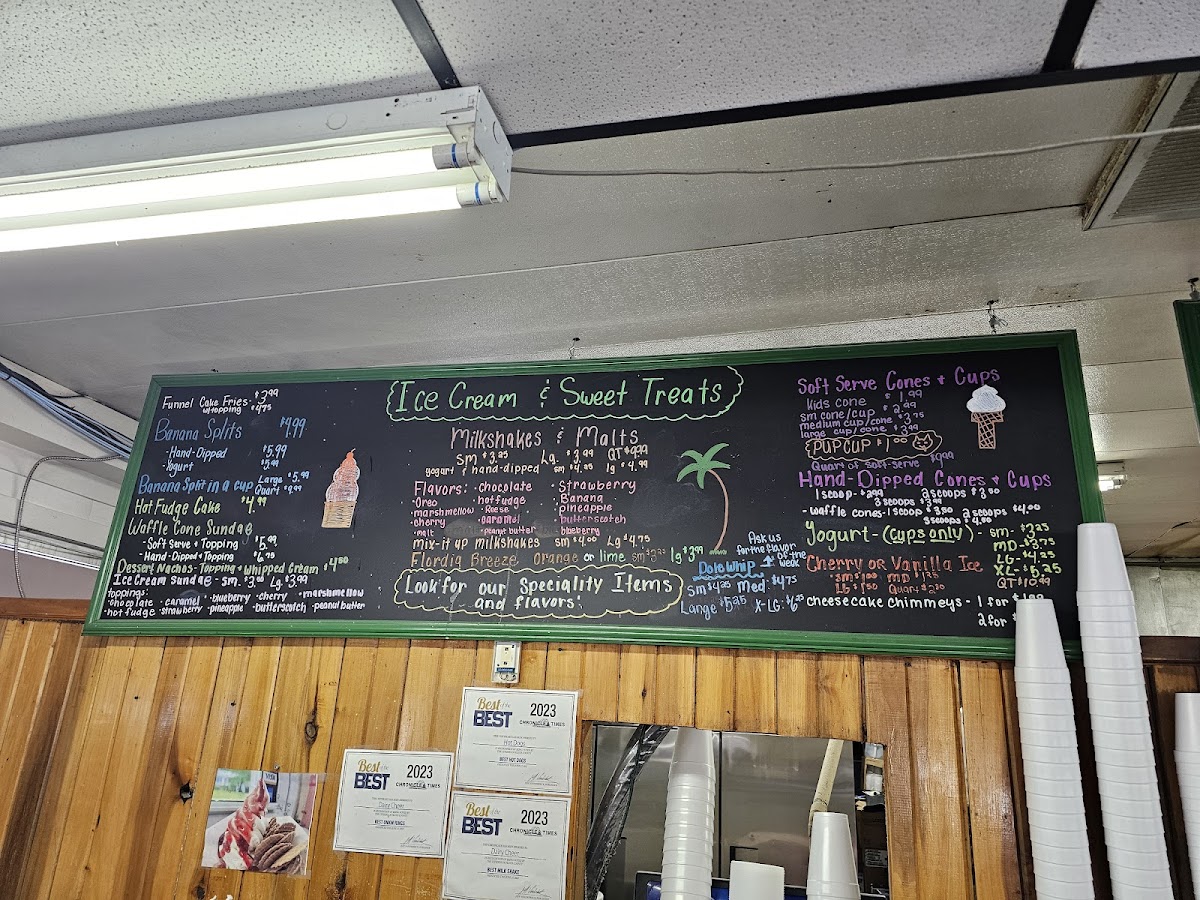 Ice Cream & Sweet Treats
Funnel Cake Fries - $3.99
w/topping $4.75
Banana Splits $4.99
- Hand-Dipped $5.99
- Yogurt $5.99
Banana Split in a cup Large $5.99
Quart $9.99
Hot Fudge Cake $4.99
Waffle Cone Sundae
- Soft Serve + Topping $5.99
- Hand-Dipped + Topping
Dessert Nachos - Topping + Whipped Cream $4.50
Ice Cream Sundae - sm. $3.00 Lg $3.99
toppings:
chocolate · caramel · blueberry · cherry · marshmellow
hot fudge · strawberry · pineapple · butterscotch · peanut butter
Milkshakes & Malts
sm $3.25 Lg. $3.99 QT $9.99
yogurt & hand-dipped sm $4.25 lg $4.99
Flavors: · chocolate · Strawberry
· Oreo · hot fudge · Banana
· marshmellow · Reese · pineapple
· cherry · caramel · butterscotch
· malt · peanut butter · blueberry
mix-it up milkshakes sm $4.00 Lg $4.75
Flordia Breeze Orange or lime sm $3.25 lg $3.99
Look for our Speciality Items
and flavors!
Ask us
for the flavor
of the
week
Dole Whip
sm $4.25 Med. $4.75
Large $5.25 X-LG. $6.25
Soft Serve Cones + Cups
Kids cone $1.99
sm cone/cup $2.99
medium cup/cone $3.75
large cup/cone $3.99
PUPCUP $1.00
Quart of soft-serve $9.99
Hand-Dipped Cones + Cups
1 scoop - $2.99 2 scoops $3.50
3 scoops $3.99
- waffle cones - 1 scoop $3.50 2 scoops $4.00
3 scoops $4.00
Yogurt - (cups only) - sm- $3.25
MD- $3.75
LG- $4.25
XL- $5.25
QT $10.99
Cherry or Vanilla Ice
sm $1.00 MD $1.25
LG $1.50 Quart $2.50
cheesecake chimmeys - 1 for
2 for
Best of the
BEST
2023
CHRONICLE & TIMES
Hot Dogs
BEST HOT DOGS
Best of the
BEST
2023
CHRONICLE & TIMES
Dairy Cheer
Best of the
BEST
2023
CHRONICLE & TIMES
Dairy Cheer
BEST MILK SHAKE